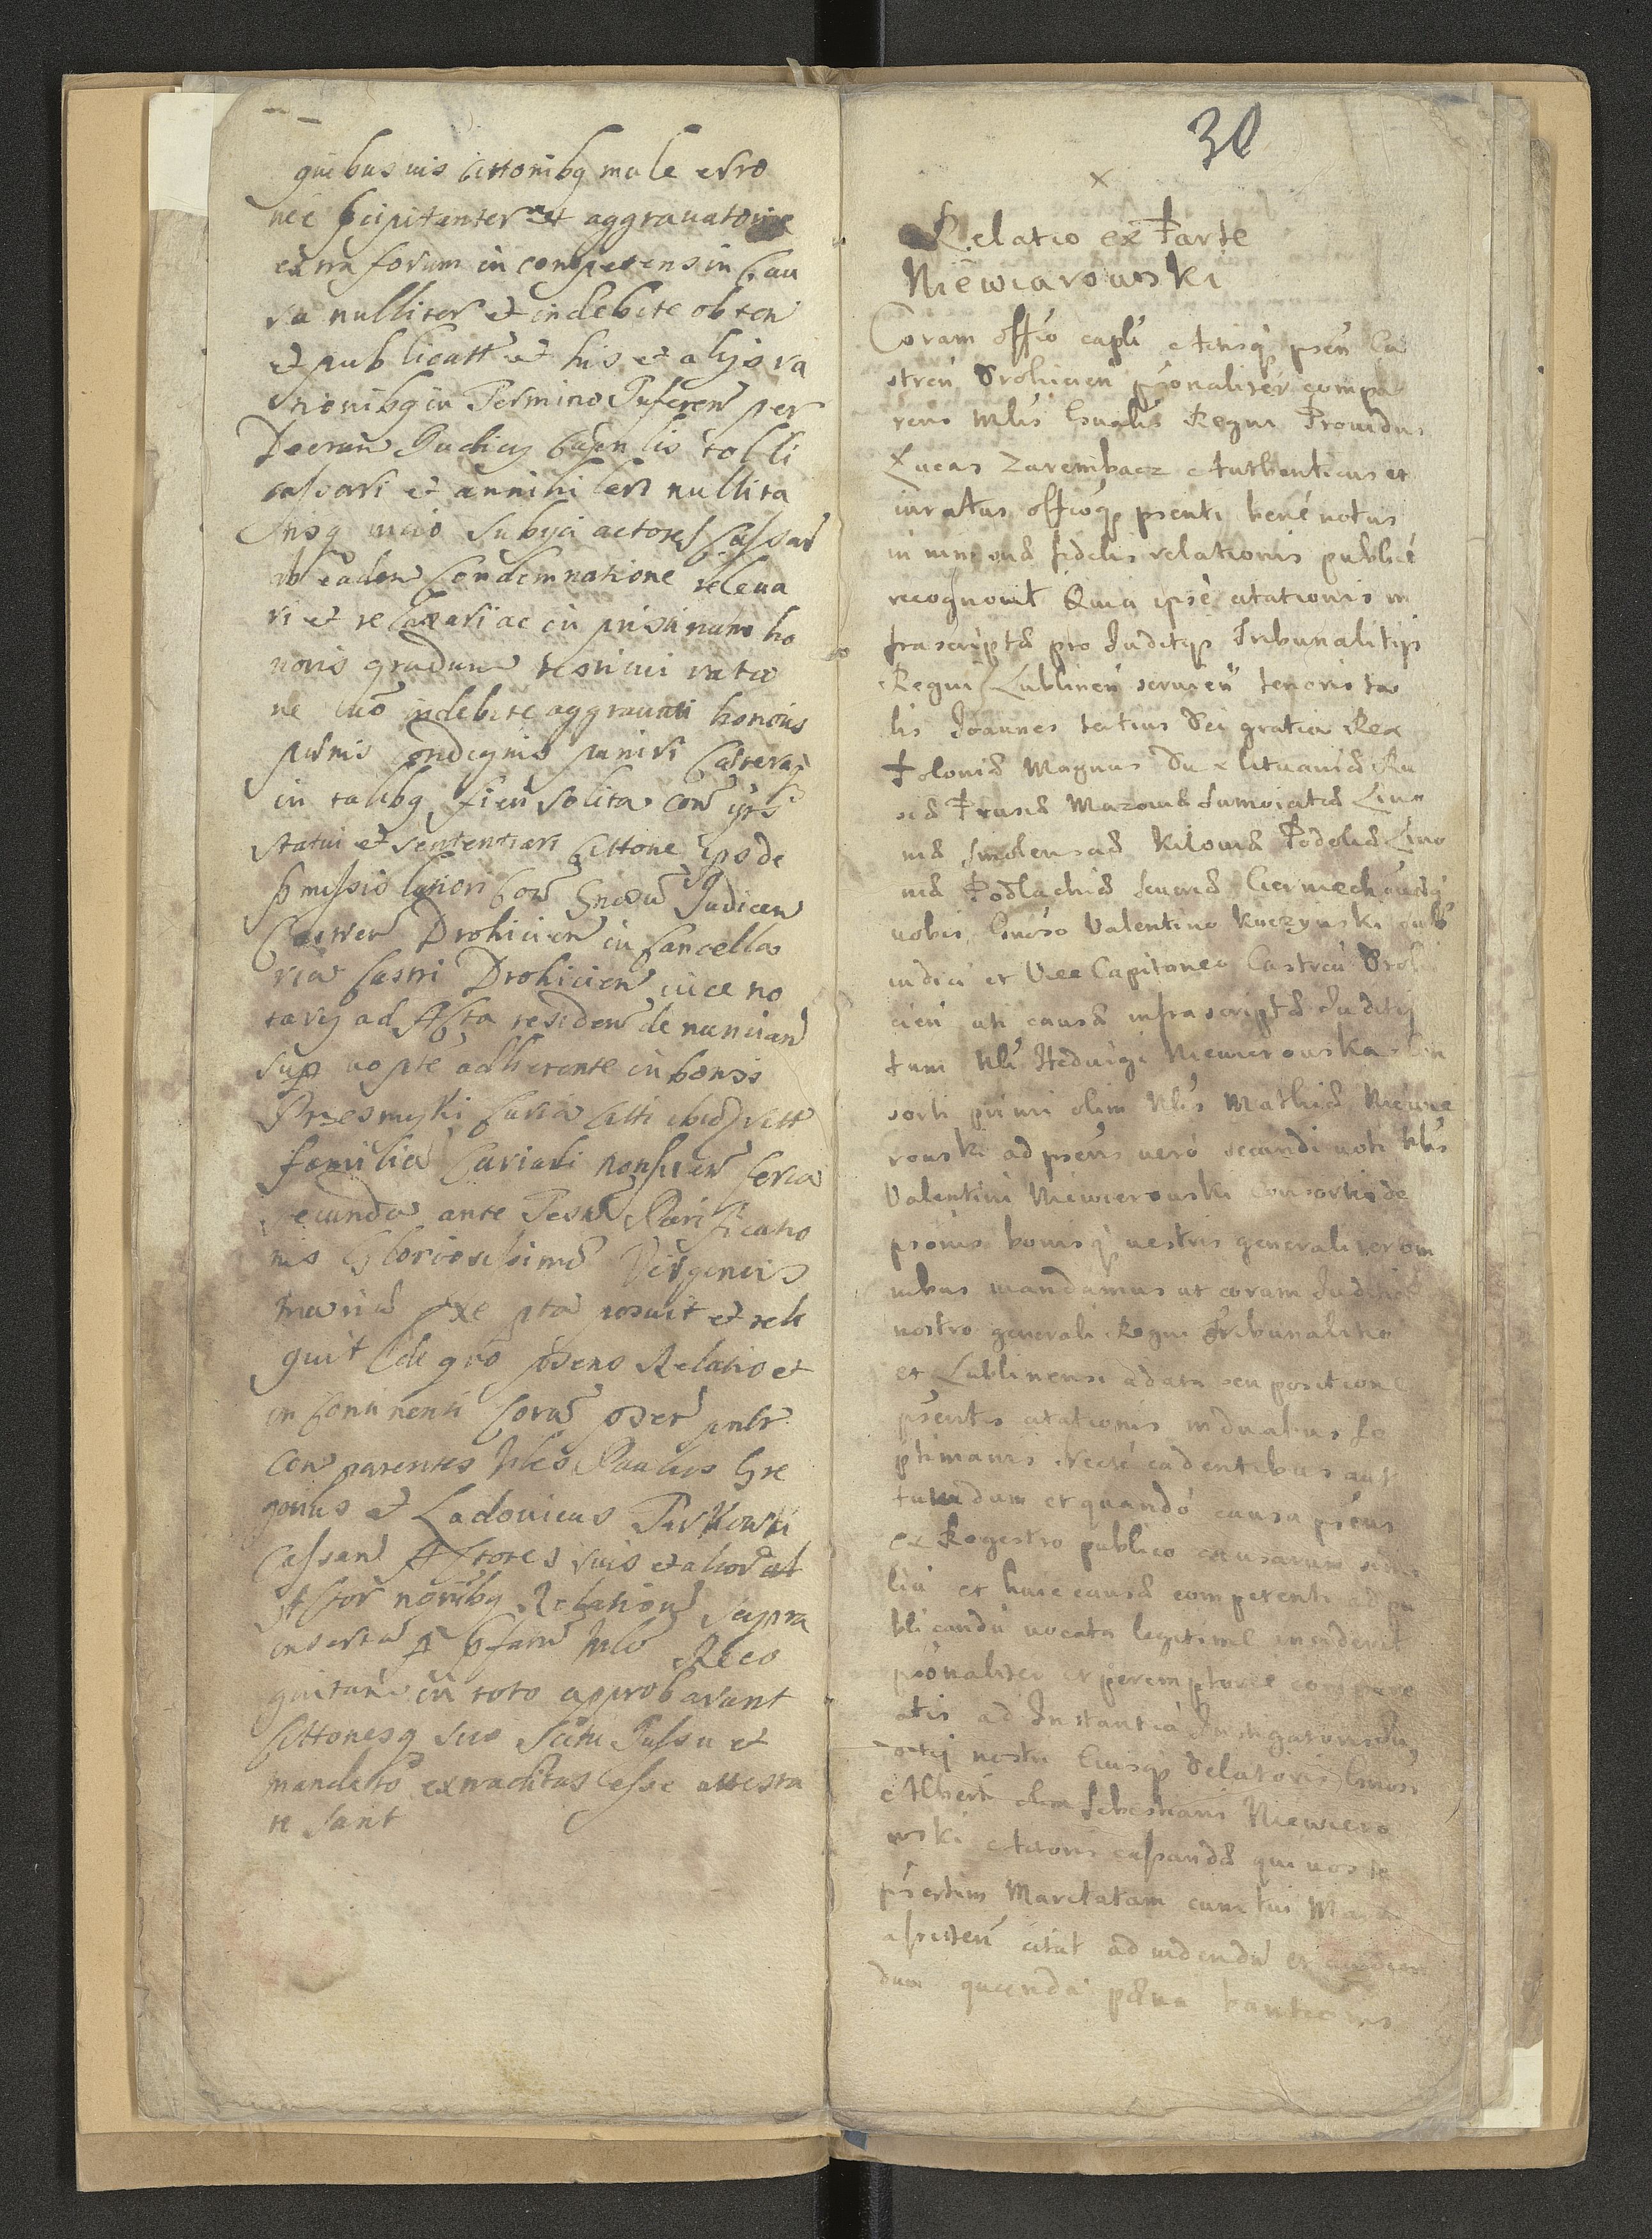 quibusuis Cittonibq male erro
nee pcipitanter et aggrauatorie
extra forum in competens in Cau
sa nulliter et indebite obten
et publicatt et his et alijs ra
tionibq in Termino Tuferen per
Decretu Judicij Capitn lis tolli
cassari et annihilari nullita
tisq nicio Subijci actores Cassar
ab eadem Condemnatione releua
ri et relaxari ac in pristinum ho
noris gradum restitui ratio
ne cuo indebite aggrauati honoris
penis condignis puniri Caetera
in talibq fieri Solita con
statui et sententiari Cittone ipsde
pmissio Coram Gnosu Judicem
Castren Drohicien in Cancella
ria Castri Drohicien uice no
tarij ad Acta residen denuncian
Sup uo pte adherente in bonis
Przesmyki Curia
familia Curiali feria
secunda ante Festu Purificatio
nis Gloriosissime Virginis
maria posuit et reli
quit de quo psens Relatio et
in Continenti Cora
Comparentes Nbles Paulus Gre
gorius et Ladouicus Turkowski
Cassan Actores suis et alior
Actor noibq Relatione supra
inserta p Reco
gnitam in toto approbarunt
Cittonesq suo Scitu Iussu et
mandato extraditas esse attesta
ti sunt
30
x
Relatio ex Parte
Niewiarowski
Coram offio capli Actisq psen Ca
stren Drohicien psonaliter compa
rens Mlis Gnalis Regni Prouidus
Lucas Zarembacz Authenticus et
iuratus officoq psenti bene notus
in uim sua fidelis relationis publice
recognouit Quia ipse citationis in
frascripta pro Juditijs Tribunalitijs
Regni Lublinen seruien tenoris ta
lis Joannes tertius Dei gratia Rex
Polonia Magnus Dux Lituania Ru
sia Prusia Mazouia Samoiatia Liuo
nia Smolenscia Kiiouia Podolia Liuo
nia Podlachia Seueria Czerniechouiaq
uobis Gnoso Valentino Kuczynski sub
iudici et Vice Capitaneo Castren Drohi
cien uti causa infrascripta Juditij
tum Nbli Heduigi Niewierouska Con
sorti primi olim Nblis Mathia Niewie
rouski ad psens uero secundi uoti Nblis
Valentini Niewierouski consortis de
psonis bonisq uestris generaliter om
nibus mandamus ut coram Juditio
nostro generali Regni Tribunalitio
et Lublinensi a data seu positione
psentis citationis in duabus Se
ptimanis recte cadentibus aut
tunc dum et quando causa psens
ex Regestro publico causarum simi
liu et huic causa competenti ad pu
blicandu uocata legitime inciderit
psonaliter et peremptorie compare
atis ad Instantia Instigatoris Ju
ditij nostri Eiusq Delatoris Gnosi
Alberti olim Sebestiani Niewiero
wski Actoris cassanda qui uos te
psertim Maritatam cum tui Mariti
assisten citat ad uidendu et audien
dum paena banitionis